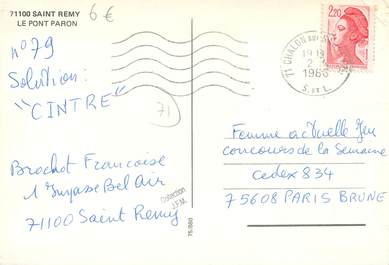 71100 SAINT REMY
LE PONT PARON
6€
n° 79
Solution:
"CINTRE"
71
Brochot Francoise
1 Impasse Bel Air
71100 Saint Remy
Collection
J.F.M.
75/880
71 CHALON
1986
S. ET L.
2,20
Femme actuelle Jeu
concours de la Semaine
cedex 834
75608 PARIS BRUNE